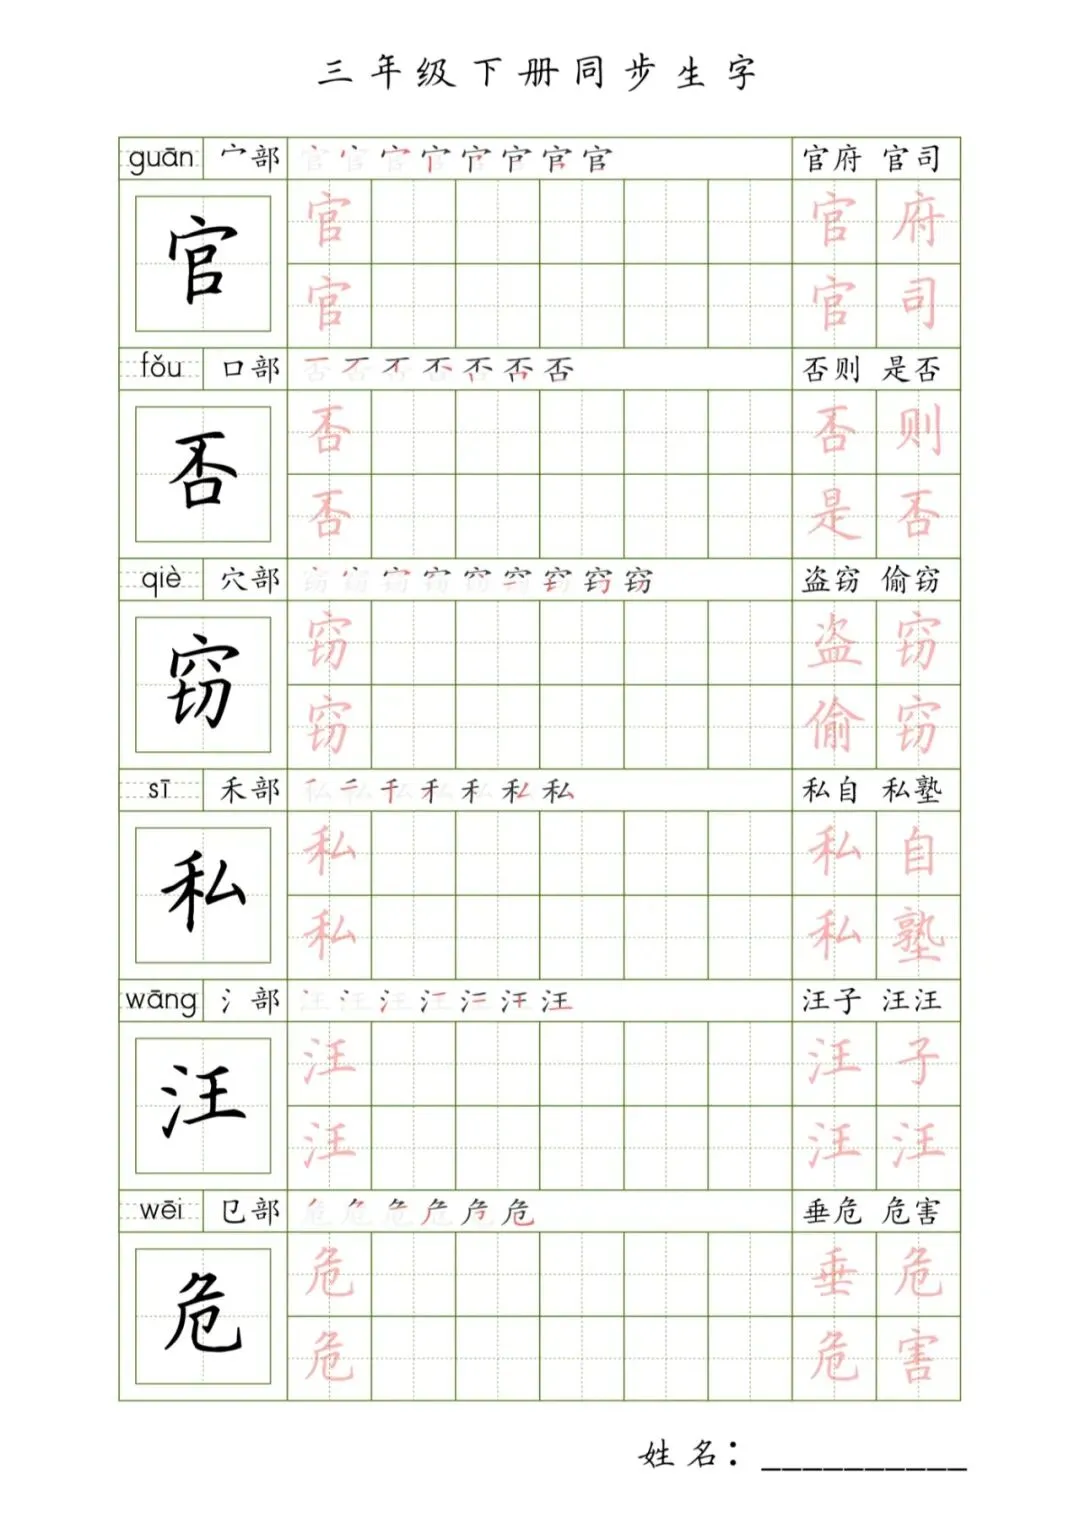 三年级下册同步生字
guān 宀部 官官官官官官官官 官府 官司
官 官 官 府
官 官 司
fǒu 口部 否否否否否否否 否则 是否
否 否 否 则
否 是 否
qiè 穴部 窃窃窃窃窃窃窃窃窃 盗窃 偷窃
窃 窃 盗 窃
窃 偷 窃
sī 禾部 私私私私私私私 私自 私塾
私 私 私 自
私 私 塾
wāng 氵部 汪汪汪汪汪汪汪 汪子 汪汪
汪 汪 汪 子
汪 汪 汪
wēi 㔾部 危危危危危危 垂危 危害
危 危 垂 危
危 危 害
姓名：__________